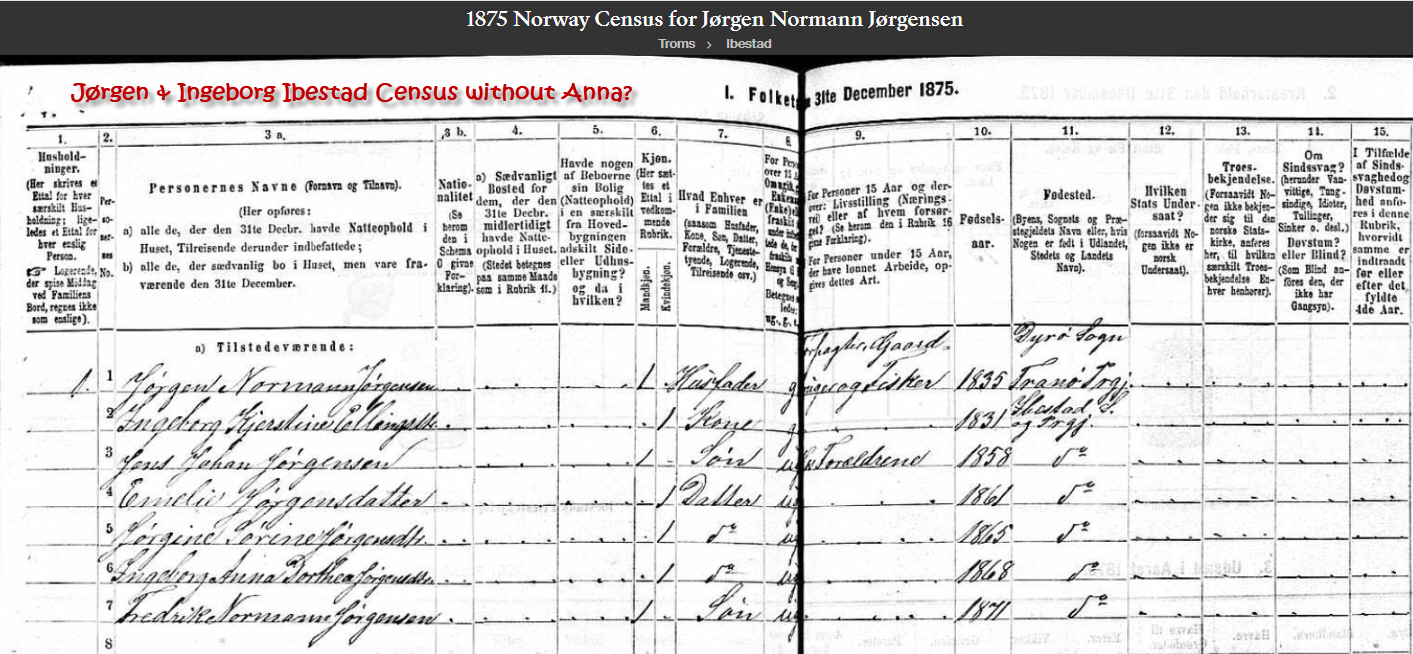 1875 Norway Census for Jørgen Normann Jørgensen
Troms > Ibestad
Jørgen & Ingeborg Ibestad Census without Anna?
I. Folket
31te December 1875.
1. 2. 3 a. 3 b. 4. 5. 6. 7. 8. 9. 10. 11. 12. 13. 14. 15.
Hushold-
ninger.
(Her skrives et
Ettal for hver
særskilt Hus-
holdning; lige-
ledes et Ettal for
hver enslig
Person.
Logerende,
der spise Middag
ved Familiens
Bord, regnes ikke
som enslige).
Personernes Navne (Fornavn og Tilnavn).
(Her opføres:
a) alle de, der den 31te Decbr. havde Natteophold i
Huset, Tilreisende derunder indbefattede;
b) alle de, der sædvanlig bo i Huset, men vare fra-
værende den 31te December.
Natio-
nalitet
(Se
herom
den i
Schema
C givne
For-
klaring).
a) Sædvanligt
Bosted for
dem, der den
31te Decbr.
midlertidigt
havde Natte-
ophold i Huset.
(Stedet betegnes
paa samme Maade
som i Rubrik 11.)
Havde nogen
af Beboerne
sin Bolig
(Natteophold)
i en særskilt
fra Hoved-
bygningen
adskilt Side-
eller Udhus-
bygning?
og da i
hvilken?
Kjøn.
(Her sæt-
tes et
Ettal i
vedkom-
mende
Rubrik.
Mandkjøn.
Kvindekjøn.
Hvad Enhver er
i Familien
(saasom Husfader,
Kone, Søn, Datter,
Forældre, Tjeneste-
tyende, Logerende,
Tilreisende osv.)
For Personer 15 Aar og der-
over: Livsstilling (Nærings-
vei) eller af hvem forsør-
get? (Se herom den i Rubrik 16
givne Forklaring).
For Personer under 15 Aar,
der have lønnet Arbeide, op-
gives dettes Art.
Fødsels-
aar.
Fødested.
(Byens, Sognets og Præ-
stegjeldets Navn eller, hvis
Nogen er født i Udlandet,
Stedets og Landets
Navn).
Hvilken
Stats Under-
saat?
(forsaavidt No-
gen ikke er
norsk
Undersaat).
Troes-
bekjendelse.
(Forsaavidt No-
gen ikke bekjen-
der sig til den
norske Stats-
kirke, anføres
her, til hvilken
særskilt Troes-
bekjendelse En-
hver henhører).
Om
Sindsvag?
(herunder Van-
vittige, Tung-
sindige, Idioter,
Tullinger,
Sinker o. desl.)
Døvstum?
eller Blind?
(Som Blind an-
føres den, der
ikke har
Gangsyn).
I Tilfælde
af Sinds-
svaghed og
Døvstum-
hed anfø-
res i denne
Rubrik,
hvorvidt
samme er
indtraadt
før eller
efter det
fyldte
4de Aar.
a) Tilstedeværende:
Gaard- Dyrø Sogn
1. 1 Jørgen Normann Jørgensen 1 Husfader g og Fisker 1835 Tranø Prgj.
2 Ingeborg Kjerstine Ellingsdtr. 1 Kone g 1831 Ibestad S. og Prgj.
3 Jens Johan Jørgensen 1 Søn ug Forældrene 1858 do
4 Emelie Jørgensdatter 1 Datter ug 1861 do
5 Jørgine Sørine Jørgensdtr. 1 do ug 1865 do
6 Ingeborg Anna Dorthea Jørgensdtr. 1 do ug 1868 do
7 Fredrik Normann Jørgensen 1 Søn ug 1871 do
8